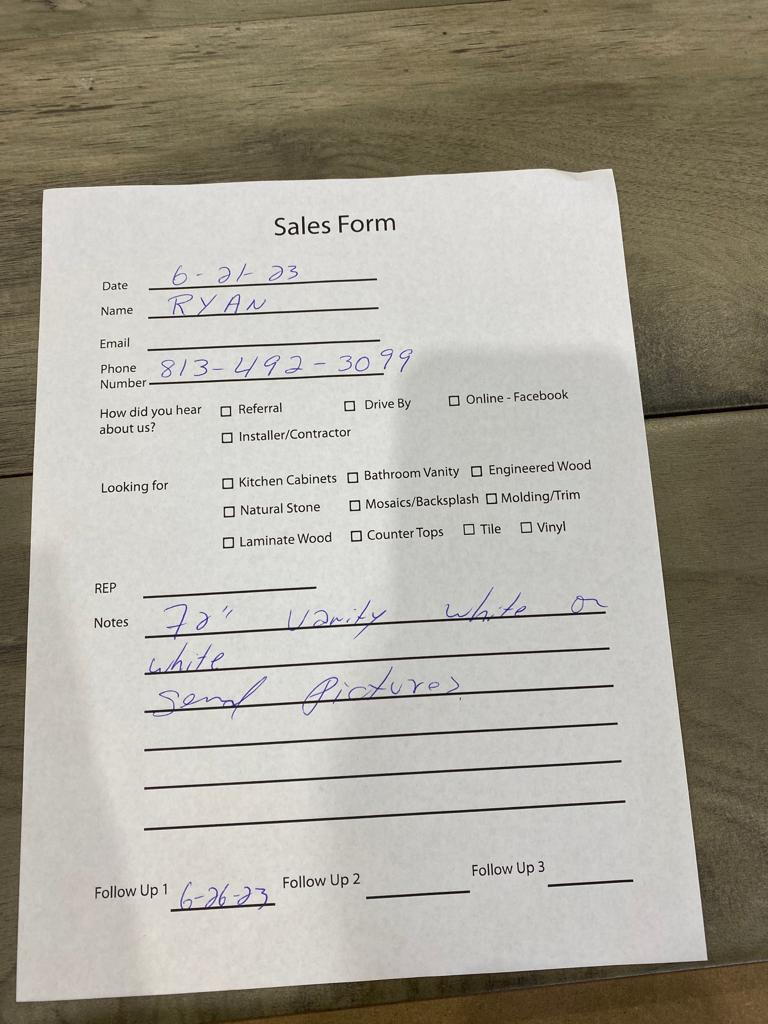 Sales Form
Date 6-21-23
Name RYAN
Email
Phone Number 813-492-3099
How did you hear about us? ☐ Referral ☐ Drive By ☐ Online - Facebook
☐ Installer/Contractor
Looking for ☐ Kitchen Cabinets ☐ Bathroom Vanity ☐ Engineered Wood
☐ Natural Stone ☐ Mosaics/Backsplash ☐ Molding/Trim
☐ Laminate Wood ☐ Counter Tops ☐ Tile ☐ Vinyl
REP
Notes 72" Vanity white on
white
Send Pictures
Follow Up 1 6-26-23 Follow Up 2 Follow Up 3